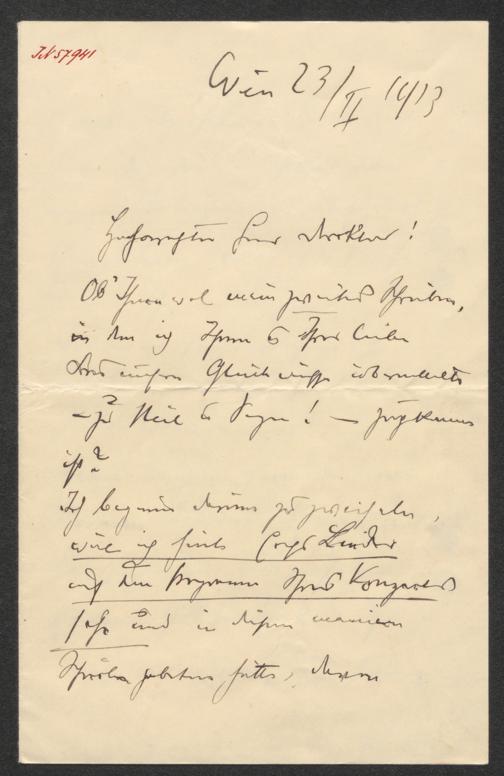 IN 57941
Wien 23/II 1913
Hochgeehrter Herr Direktor!
Ob Ihnen wol mein zweites Schreiben,
in dem ich Ihnen & Ihrer lieben
Glückwünsche übermittelte
— zu Heil & Segen! — zugekommen
ist?
Ich beginne daran zu zweifeln,
weil ich heute Lieder
auf dem Programm Ihres Konzertes
sehe und in diesem meinem
Schreiben gebeten hatte, davon